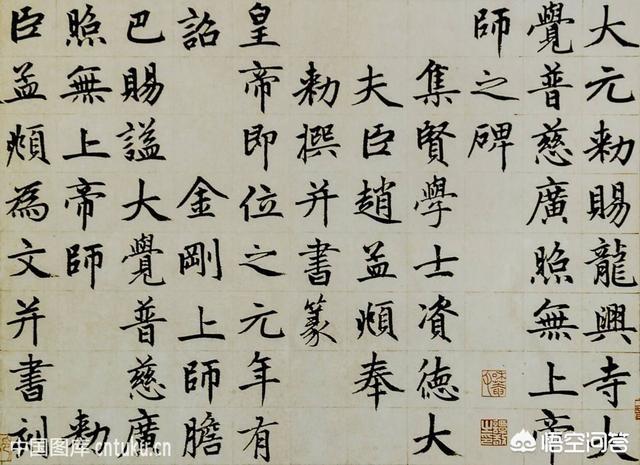 大元勅賜龍興寺大
覺普慈廣照無上帝
師之碑
集賢學士資德大
夫臣趙孟頫奉
勅撰并書篆
皇帝即位之元年有
詔金剛上師膽
巴賜謚大覺普慈廣
照無上帝師勅
臣孟頫為文并書刻
中国图库 cntuku.cn
悟空问答